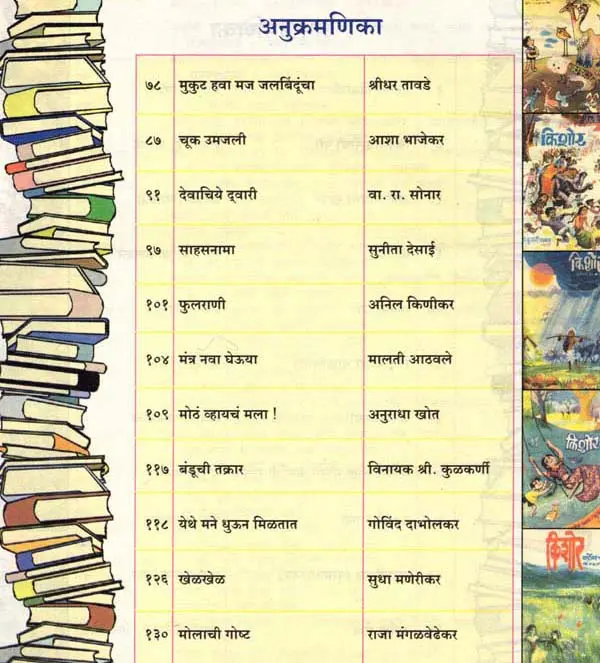 अनुक्रमणिका
७८ मुकुट हवा मज जलबिंदूंचा श्रीधर तावडे
८७ चूक उमजली आशा भाजेकर
९१ देवाचिये द्‌वारी वा. रा. सोनार
९७ साहसनामा सुनीता देसाई
१०१ फुलराणी अनिल किणीकर
१०४ मंत्र नवा घेऊया मालती आठवले
१०९ मोठं व्हायचं मला ! अनुराधा खोत
११७ बंडूची तक्रार विनायक श्री. कुळकर्णी
११८ येथे मने धुऊन मिळतात गोविंद दाभोलकर
१२६ खेळखेळ सुधा मणेरीकर
१३० मोलाची गोष्ट राजा मंगळवेढेकर
किशोर
किशोर
किशोर
किशोर